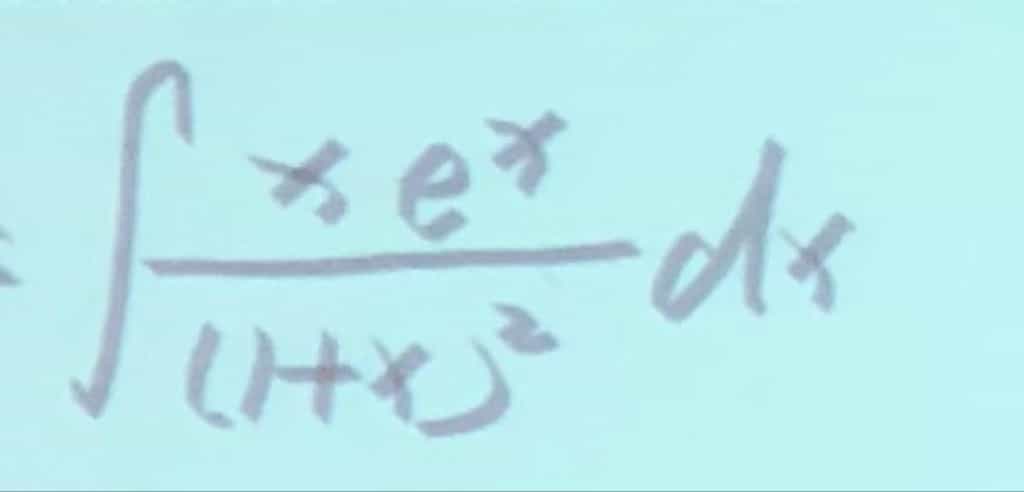 = ∫ x e^x / (1+x)^2 dx